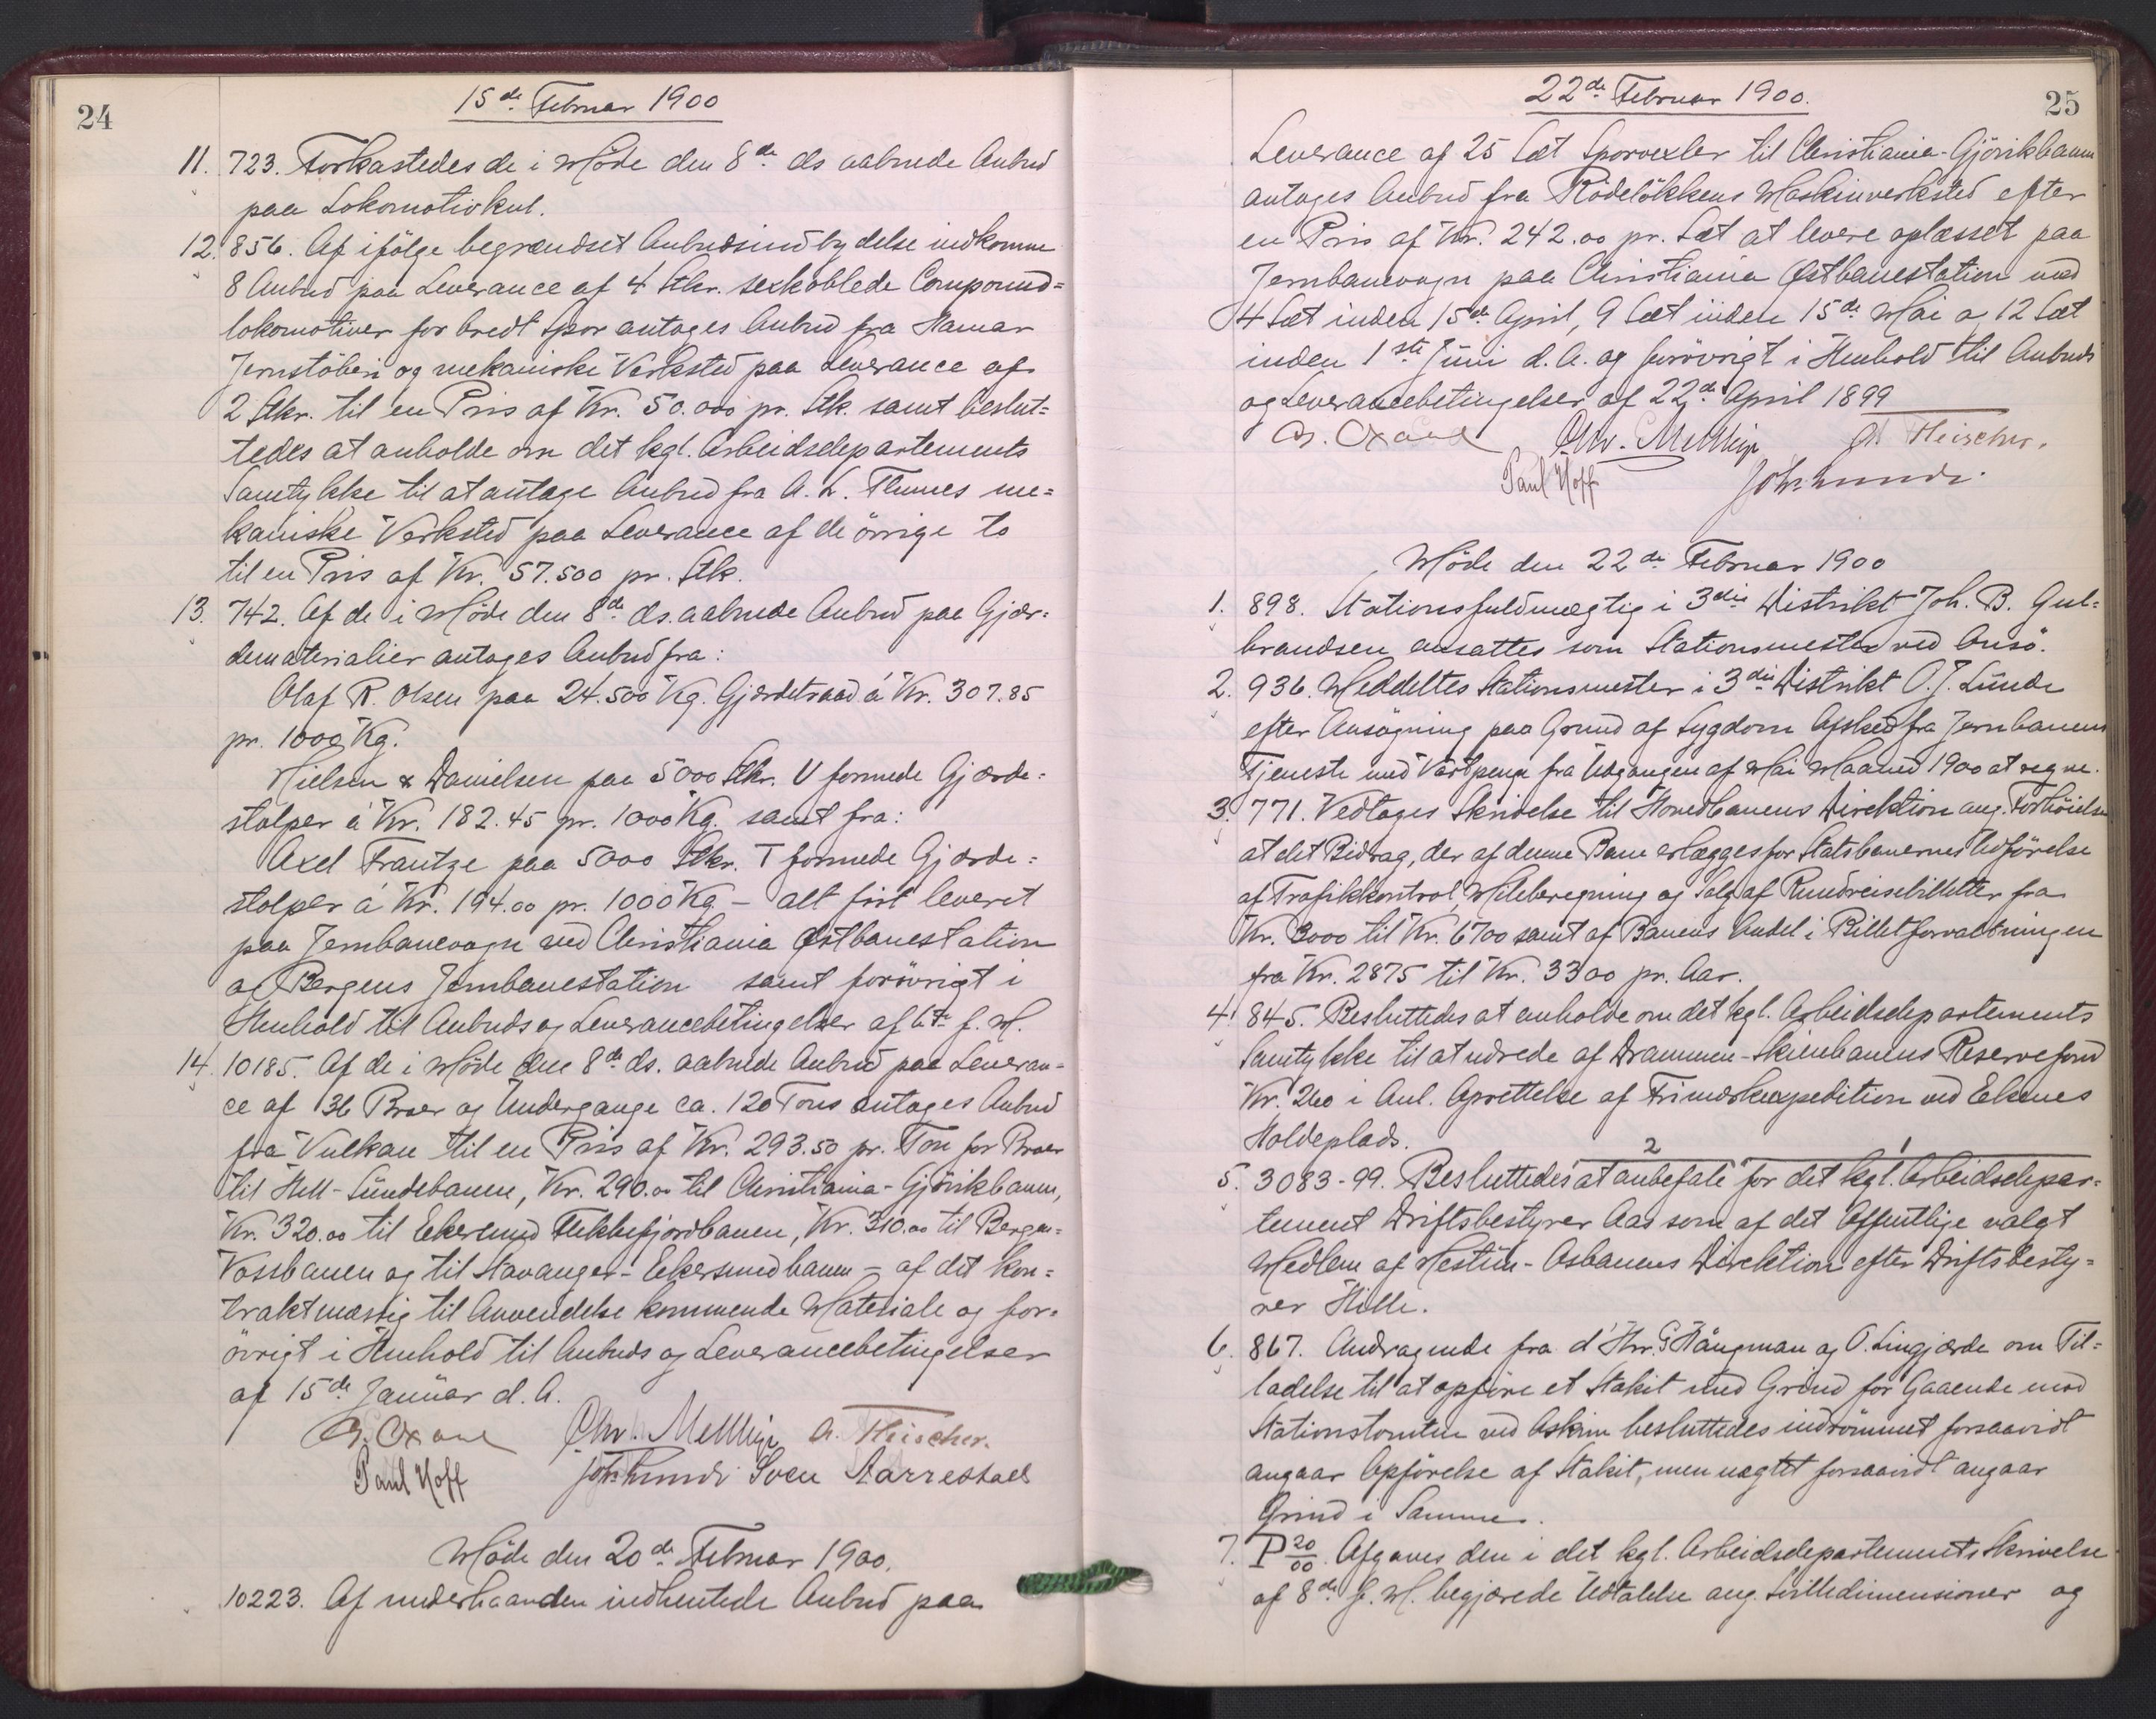 24
15de Februar 1900
11. 723. Forkastedes de i Möde den 8de ds aabnede Anbud
paa Lokomotivkul.
12. 856. Af ifölge begrændset Anbudsindbydelse indkomne
8 Anbud paa Leverance af 4 Stkr. sexkoblede Compound=
lokomotiver for bredt Spor antages Anbud fra Hamar
Jernstöberi og mekaniske Verksted paa Leverance af
2 Stkr. til en Pris af Kr. 50.000 pr. Stk. samt beslut=
tedes at anholde om det kgl. Arbeidsdepartements
Samtykke til at antage Anbud fra A. L. Thunes me=
kaniske Verksted paa Leverance af de övrige to
til en Pris af Kr. 57.500 pr. Stk.
13. 742. Af de i Möde den 8de ds. aabnede Anbud paa Gjær=
dematerialier antages Anbud fra:
Olaf R. Olsen paa 24.500 Kg. Gjærdetraad á Kr. 307.85
pr. 1000 Kg.
Nielsen & Danielsen paa 5000 Stkr. U formede Gjærde=
stolper á Kr. 182.45 pr. 1000 Kg. samt fra:
Axel Frantze paa 5000 Stkr. T formede Gjærde=
stolper á Kr. 194.00 pr. 1000 Kg – alt frit leveret
paa Jernbanevogn ved Christiania Østbanestation
og Bergens Jernbanestation samt forövrigt i
Henhold til Anbuds og Leverancebetingelser af 6te f. M.
14. 10185. Af de i Möde den 8de ds. aabnede Anbud paa Leveran=
ce af 36 Broer og Undergange ca. 120 Tons antages Anbud
fra Vulkan til en Pris af Kr. 293.50 pr. Ton for Broer
til Hell-Sundebanen, Kr. 290.00 til Christiania-Gjövikbanen,
Kr. 320.00 til Ekersund Flekkefjordbanen, Kr. 310.00 til Bergen=
Vossbanen og til Stavanger-Ekersundbanen – af det kon=
traktmæssig til Anvendelse kommende Materiale og for=
övrigt i Henhold til Anbuds og Leverancebetingelser
af 15de Januar d. A.
Chr. Mellbye A. Fleischer.
Paul Hoff Joh. Lunde Sven Aarrestad
Möde den 20de Februar 1900.
10223. Af underhaanden indhentede Anbud paa
22de Februar 1900.
25
Leverance af 25 Sæt Sporvexler til Christiania-Gjövikbanen
antages Anbud fra Rödelökkens Maskinverksted efter
en Pris af Kr. 242.00 pr. Sæt at levere oplæsset paa
Jernbanevogn paa Christiania Østbanestation med
4 Sæt inden 15de April, 9 Sæt inden 15de Mai og 12 Sæt
inden 1ste Juni d. A. og forövrigt i Henhold til Anbuds
og Leverancebetingelser af 22de April 1899
Chr. Mellbye A. Fleischer.
Paul Hoff Joh. Lunde.
Möde den 22de Februar 1900
1. 898. Stationsfuldmægtig i 3die Distrikt Joh. B. Gul=
brandsen ansattes som Stationsmester ved Onsö.
2. 936. Meddeltes Stationsmester i 3die Distrikt O. J. Lunde
efter Ansögning paa Grund af Sygdom Afsked fra Jernbanens
Tjeneste med Vartpenge fra Udgangen af Mai Maaned 1900 at regne.
3. 771. Vedtages Skrivelse til Hovedbanens Direktion ang. Forhöielse
at det Bidrag, der af denne Bane erlægges for Statsbanernes Udförelse
af Trafikkontrol, Mileberegning og Salg af Rundreisebilletter fra
Kr. 3000 til Kr. 6700 samt af Banens Andel i Billetforvaltningen
fra Kr. 2875 til Kr. 3300 pr. Aar.
4. 845. Besluttedes at anholde om det kgl. Arbeidsdepartements
Samtykke til at udrede af Drammen-Skienbanens Reservefond
Kr. 260 i Anl. Oprettelse af Frimærkexpedition ved Eknes
Holdeplads.
2 1
5. 3083-99. Besluttedes at anbefale for det kgl. Arbeidsdepar=
tement Driftsbestyrer Aas som af det Offentlige valgt
Medlem af Nestun-Osbanens Direktion efter Driftsbesty=
rer Hille.
6. 867. Andragende fra d'Hrr. G Hångman og O. Lingjærde om Til=
ladelse til at opföre et Stakit med Grind for Gaaende mod
Stationstomten ved Askim besluttedes indrömmet forsaavidt
angaar Opförelse af Stakit, men nægtet forsaavidt angaar
Grind i Samme.
7. P 20/00. Afgaves den i det kgl. Arbeidsdepartements Skrivelse
af 8de f. M. begjærede Udtalelse ang. Svilledimensioner og